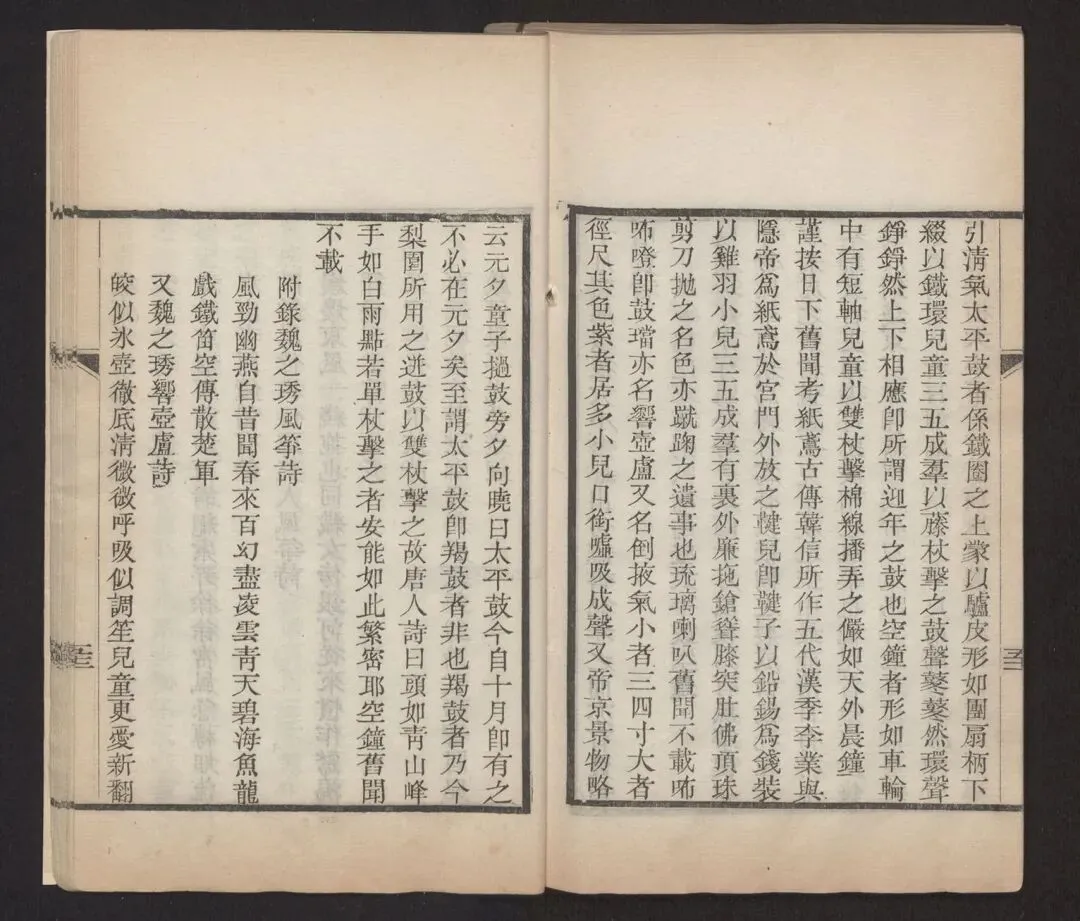 引清氣太平鼓者係鐵圈之上蒙以驢皮形如團扇柄下
綴以鐵環兒童三五成羣以藤杖擊之鼓聲鼕鼕然環聲
錚錚然上下相應卽所謂迎年之鼓也空鐘者形如車輪
中有短軸兒童以雙杖擊棉線播弄之儼如天外晨鐘
謹按日下舊聞考紙鳶古傳韓信所作五代漢季李業與
隱帝爲紙鳶於宮門外放之毽兒卽鞬子以鉛錫爲錢裝
以雞羽小兒三五成羣有裏外廉拖鎗聳膝突肚佛頂珠
剪刀拋之名色亦蹴踘之遺事也琉璃喇叭舊聞不載㖠
㖠噔卽鼓璫亦名響壺盧又名倒掖氣小者三四寸大者
徑尺其色紫者居多小兒口銜噓吸成聲又帝京景物略
云元夕童子撾鼓旁夕向曉曰太平鼓今自十月卽有之
不必在元夕矣至謂太平鼓卽羯鼓者非也羯鼓者乃今
梨園所用之迸鼓以雙杖擊之故唐人詩曰頭如靑山峰
手如白雨點若單杖擊之者安能如此繁密耶空鐘舊聞
不載
附錄魏之琇風箏詩
風勁幽燕自昔聞春來百幻盡凌雲靑天碧海魚龍
戲鐵笛空傳散楚軍
又魏之琇響壺盧詩
皎似氷壺徹底淸微微呼吸似調笙兒童更愛新翻